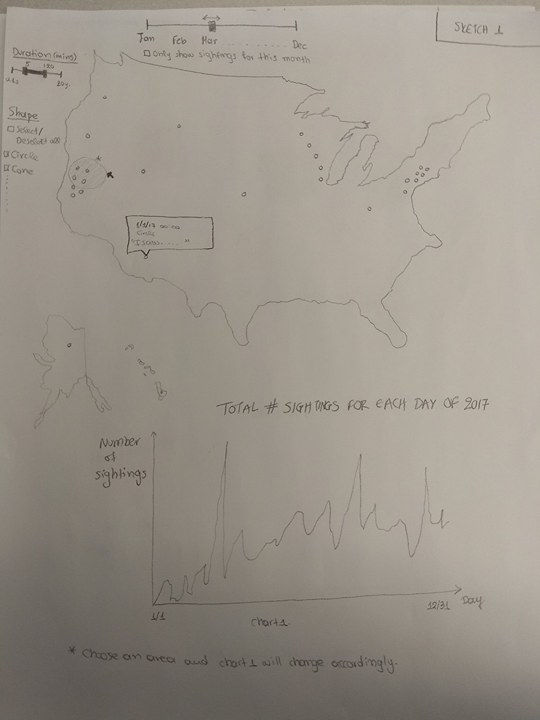 SKETCH 1
Jan Feb Mar ........ Dec
Only show sightings for this month
Duration (mins)
5 180
Shape
Select/
Deselect all
Circle
Cone
1/3/17
Circle
"I ..... "
TOTAL # SIGHTINGS FOR EACH DAY OF 2017
Number
of
sightings
1/1
12/31
Day
Chart 1
* Choose an area and chart 1 will change accordingly.